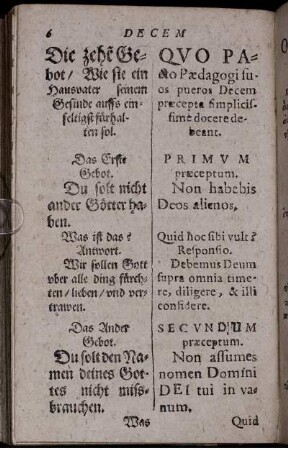 6 DECEM
Die zehẽ Ge-
bot/ Wie sie ein
Hausvater seinem
Gesinde auffs ein-
feltigst fürhal-
ten sol.
Das Erste
Gebot.
Du solt nicht
ander Götter ha-
ben.
Was ist das?
Antwort.
Wir sollen Gott
vber alle ding fürch-
ten/ lieben/ vnd ver-
trawen.
Das Ander
Gebot.
Du solt den Na-
men deines Got-
tes nicht miss-
brauchen.
Was
QVO PA-
cto Pædagogi su-
os pueros Decem
præcepta simplicis-
sime docere de-
beant.
PRIMVM
præceptum.
Non habebis
Deos alienos.
Quid hoc sibi vult?
Responsio.
Debemus Deum
supra omnia time-
re, diligere, & illi
confidere.
SECVNDUM
præceptum.
Non assumes
nomen Domini
DEI tui in va-
num.
Quid